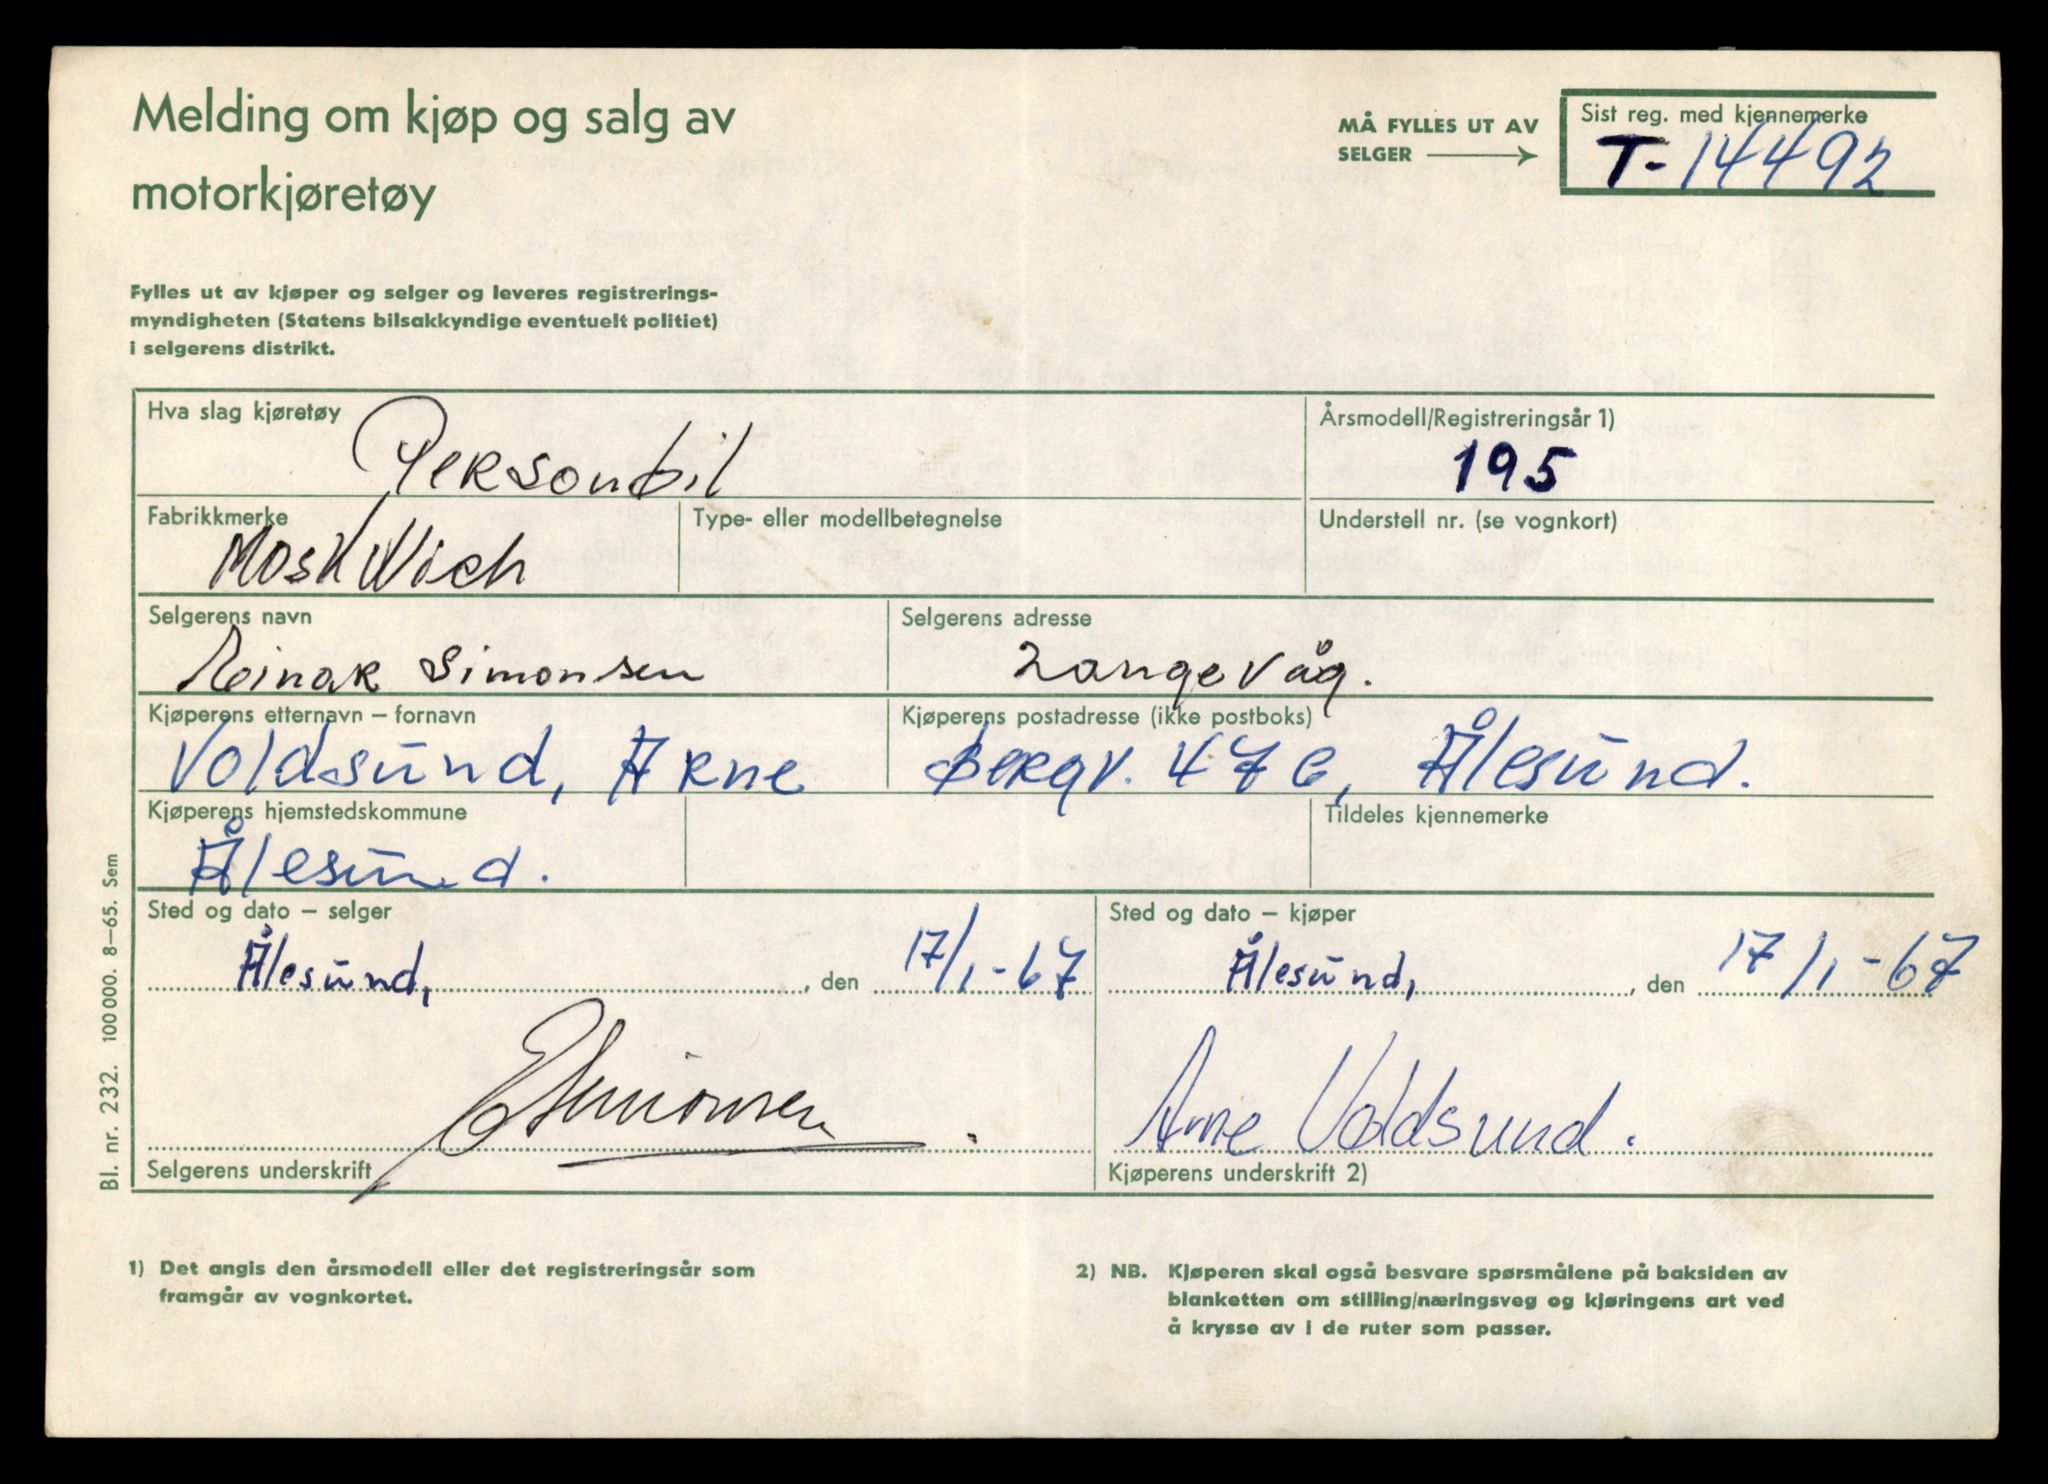 Melding om kjøp og salg av
motorkjøretøy
MÅ FYLLES UT AV
SELGER
Sist reg. med kjennemerke
T-14492
Fylles ut av kjøper og selger og leveres registrerings-
myndigheten (Statens bilsakkyndige eventuelt politiet)
i selgerens distrikt.
Hva slag kjøretøy
Personbil
Årsmodell/Registreringsår 1)
195
Fabrikkmerke
MoskWich
Type- eller modellbetegnelse
Understell nr. (se vognkort)
Selgerens navn
Einar Simonsen
Selgerens adresse
Langevåg.
Kjøperens etternavn – fornavn
Voldsund, Arne
Kjøperens postadresse (ikke postboks)
Bergv. 47 , Ålesund.
Kjøperens hjemstedskommune
Ålesund.
Tildeles kjennemerke
Sted og dato – selger
Ålesund, , den 17/1-67
Sted og dato – kjøper
Ålesund, , den 17/1-67
ESimonsen
Selgerens underskrift
Arne Voldsund.
Kjøperens underskrift 2)
Bl. nr. 232. 100 000. 8–65. Sem
1) Det angis den årsmodell eller det registreringsår som
framgår av vognkortet.
2) NB. Kjøperen skal også besvare spørsmålene på baksiden av
blanketten om stilling/næringsveg og kjøringens art ved
å krysse av i de ruter som passer.